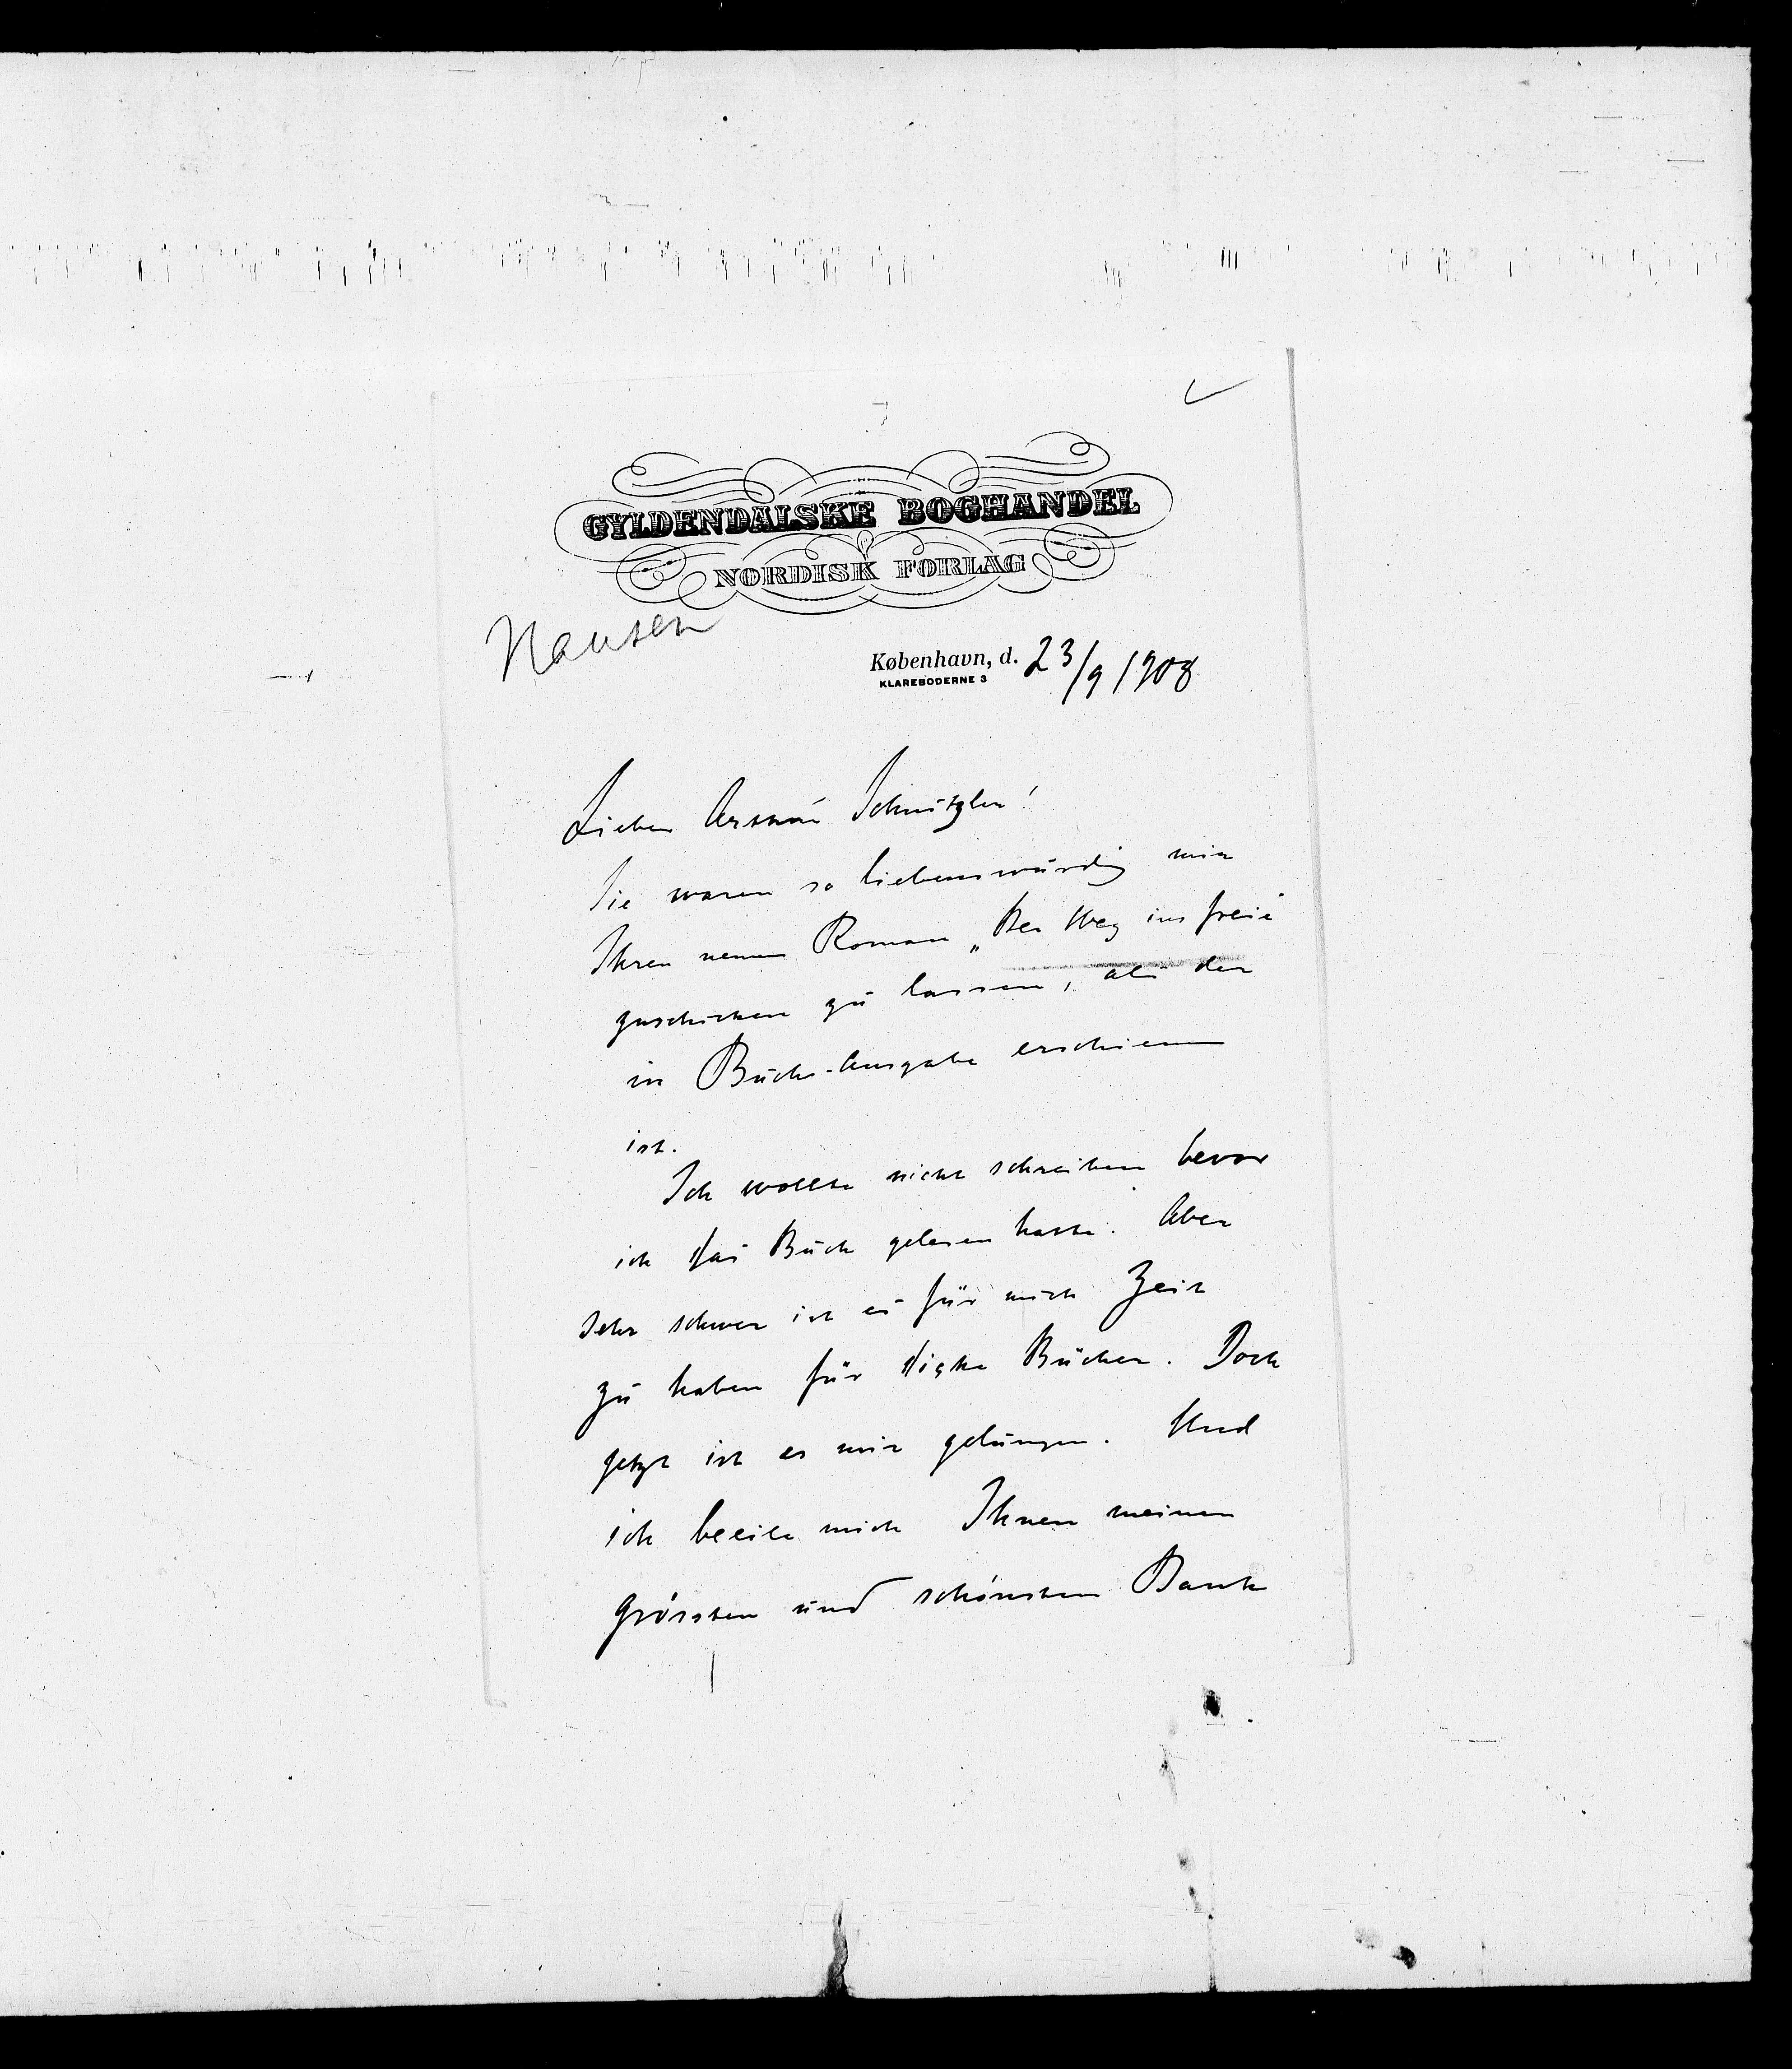 GYLDENDALSKE BOGHANDEL
NORDISK FORLAG
Nansen
København, d. 23/9 1908
KLAREBODERNE 3
Lieber Arthur Schnitzler!
Sie waren so liebenswürdig mir
Ihren neuen Roman „Der Weg ins freie“
zuschicken zu lassen, als der
in Buch-Ausgabe erschienen
ist.
Ich wollte nicht schreiben bevor
ich das Buch gelesen hatte. Aber
sehr schwer ist es für mich Zeit
zu haben für dicke Bücher. Doch
jetzt ist es mir gelungen. Und
ich beeile mich Ihnen meinen
grössten und schönsten Dank